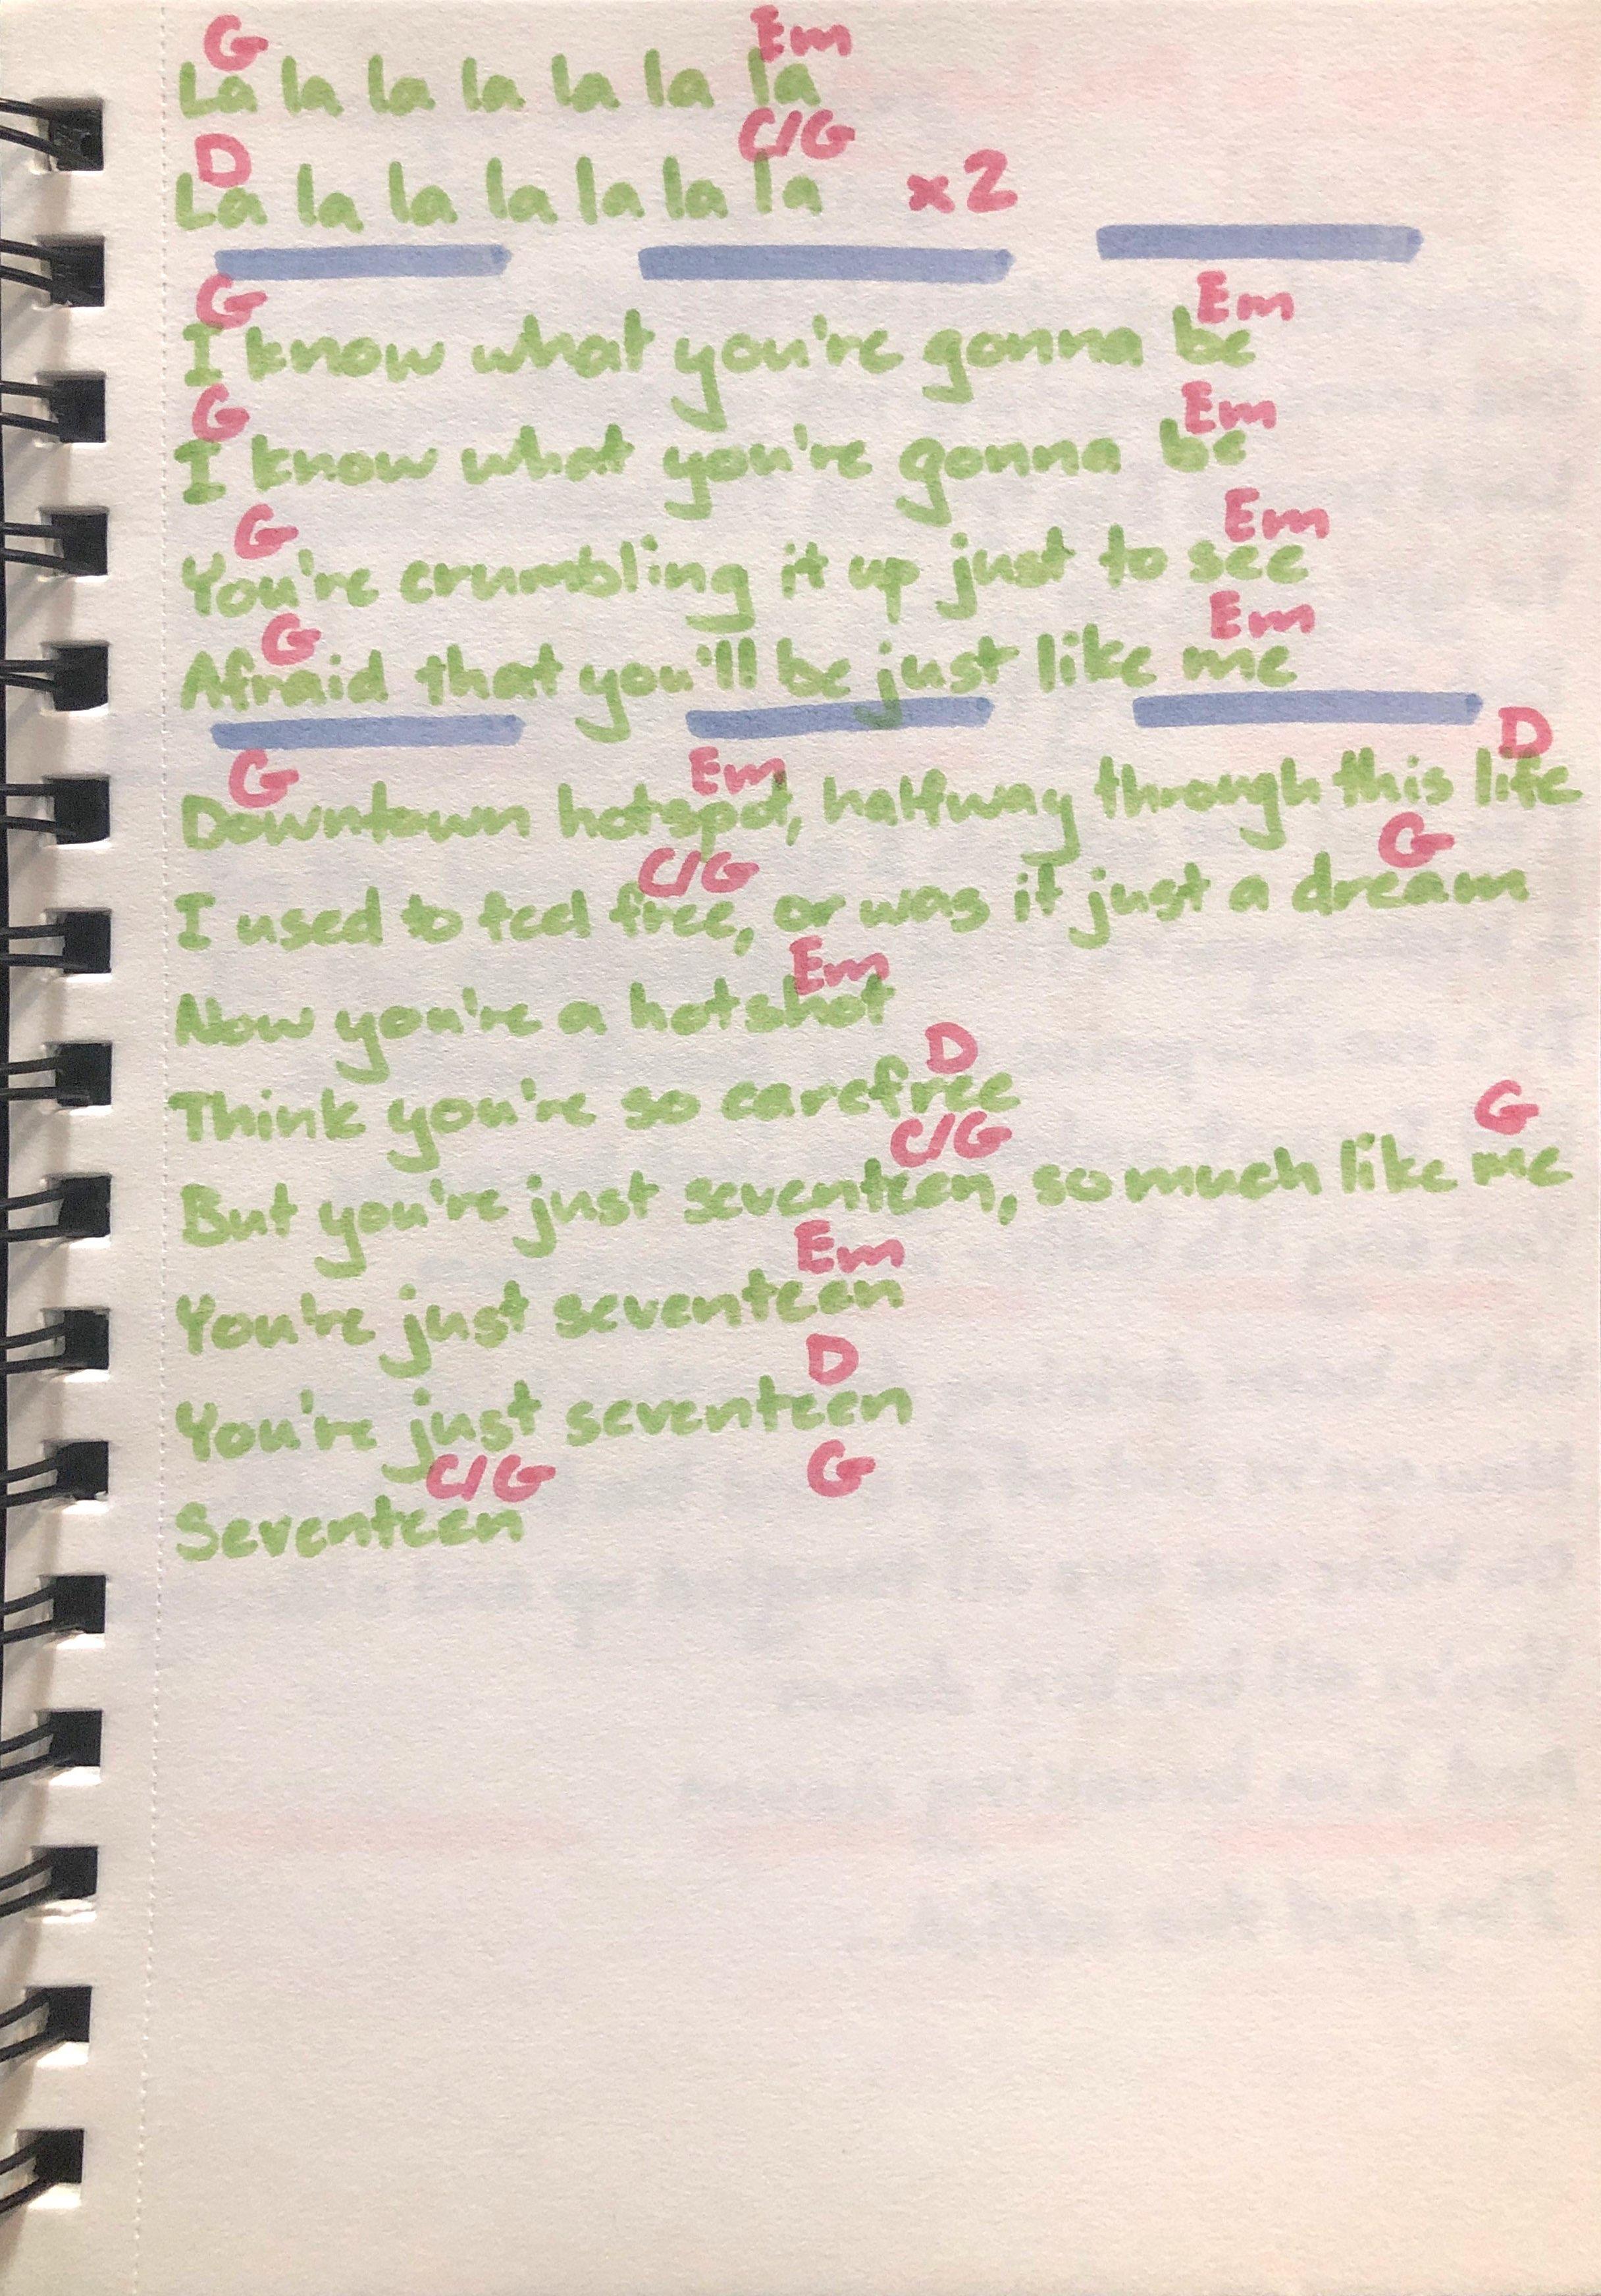 G Em
La la la la la la la
D C/G
La la la la la la la x2
G Em
I know what you're gonna be
G Em
I know what you're gonna be
G Em
You're crumbling it up just to see
G Em
Afraid that you'll be just like me
G Em D
Downtown hotspot, halfway through this life
C/G G
I used to feel free, or was it just a dream
Em
Now you're a hotshot
D
Think you're so carefree
C/G G
But you're just seventeen, so much like me
Em
You're just seventeen
D
You're just seventeen
C/G G
Seventeen